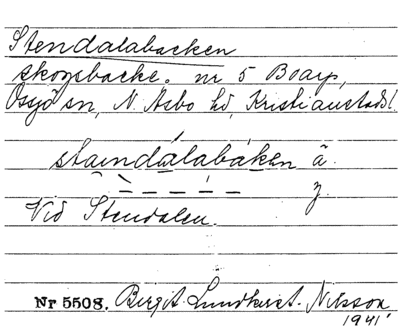 Stendalabacken
skogsbacke. nr 5 Boarp,
Össjö sn, N. Åsbo hd, Kristianstads l.
staindálabákẹn ä.
y.
Vid Stendalen.
Nr 5508. Birgit Lundkvist. Nilsson
1941